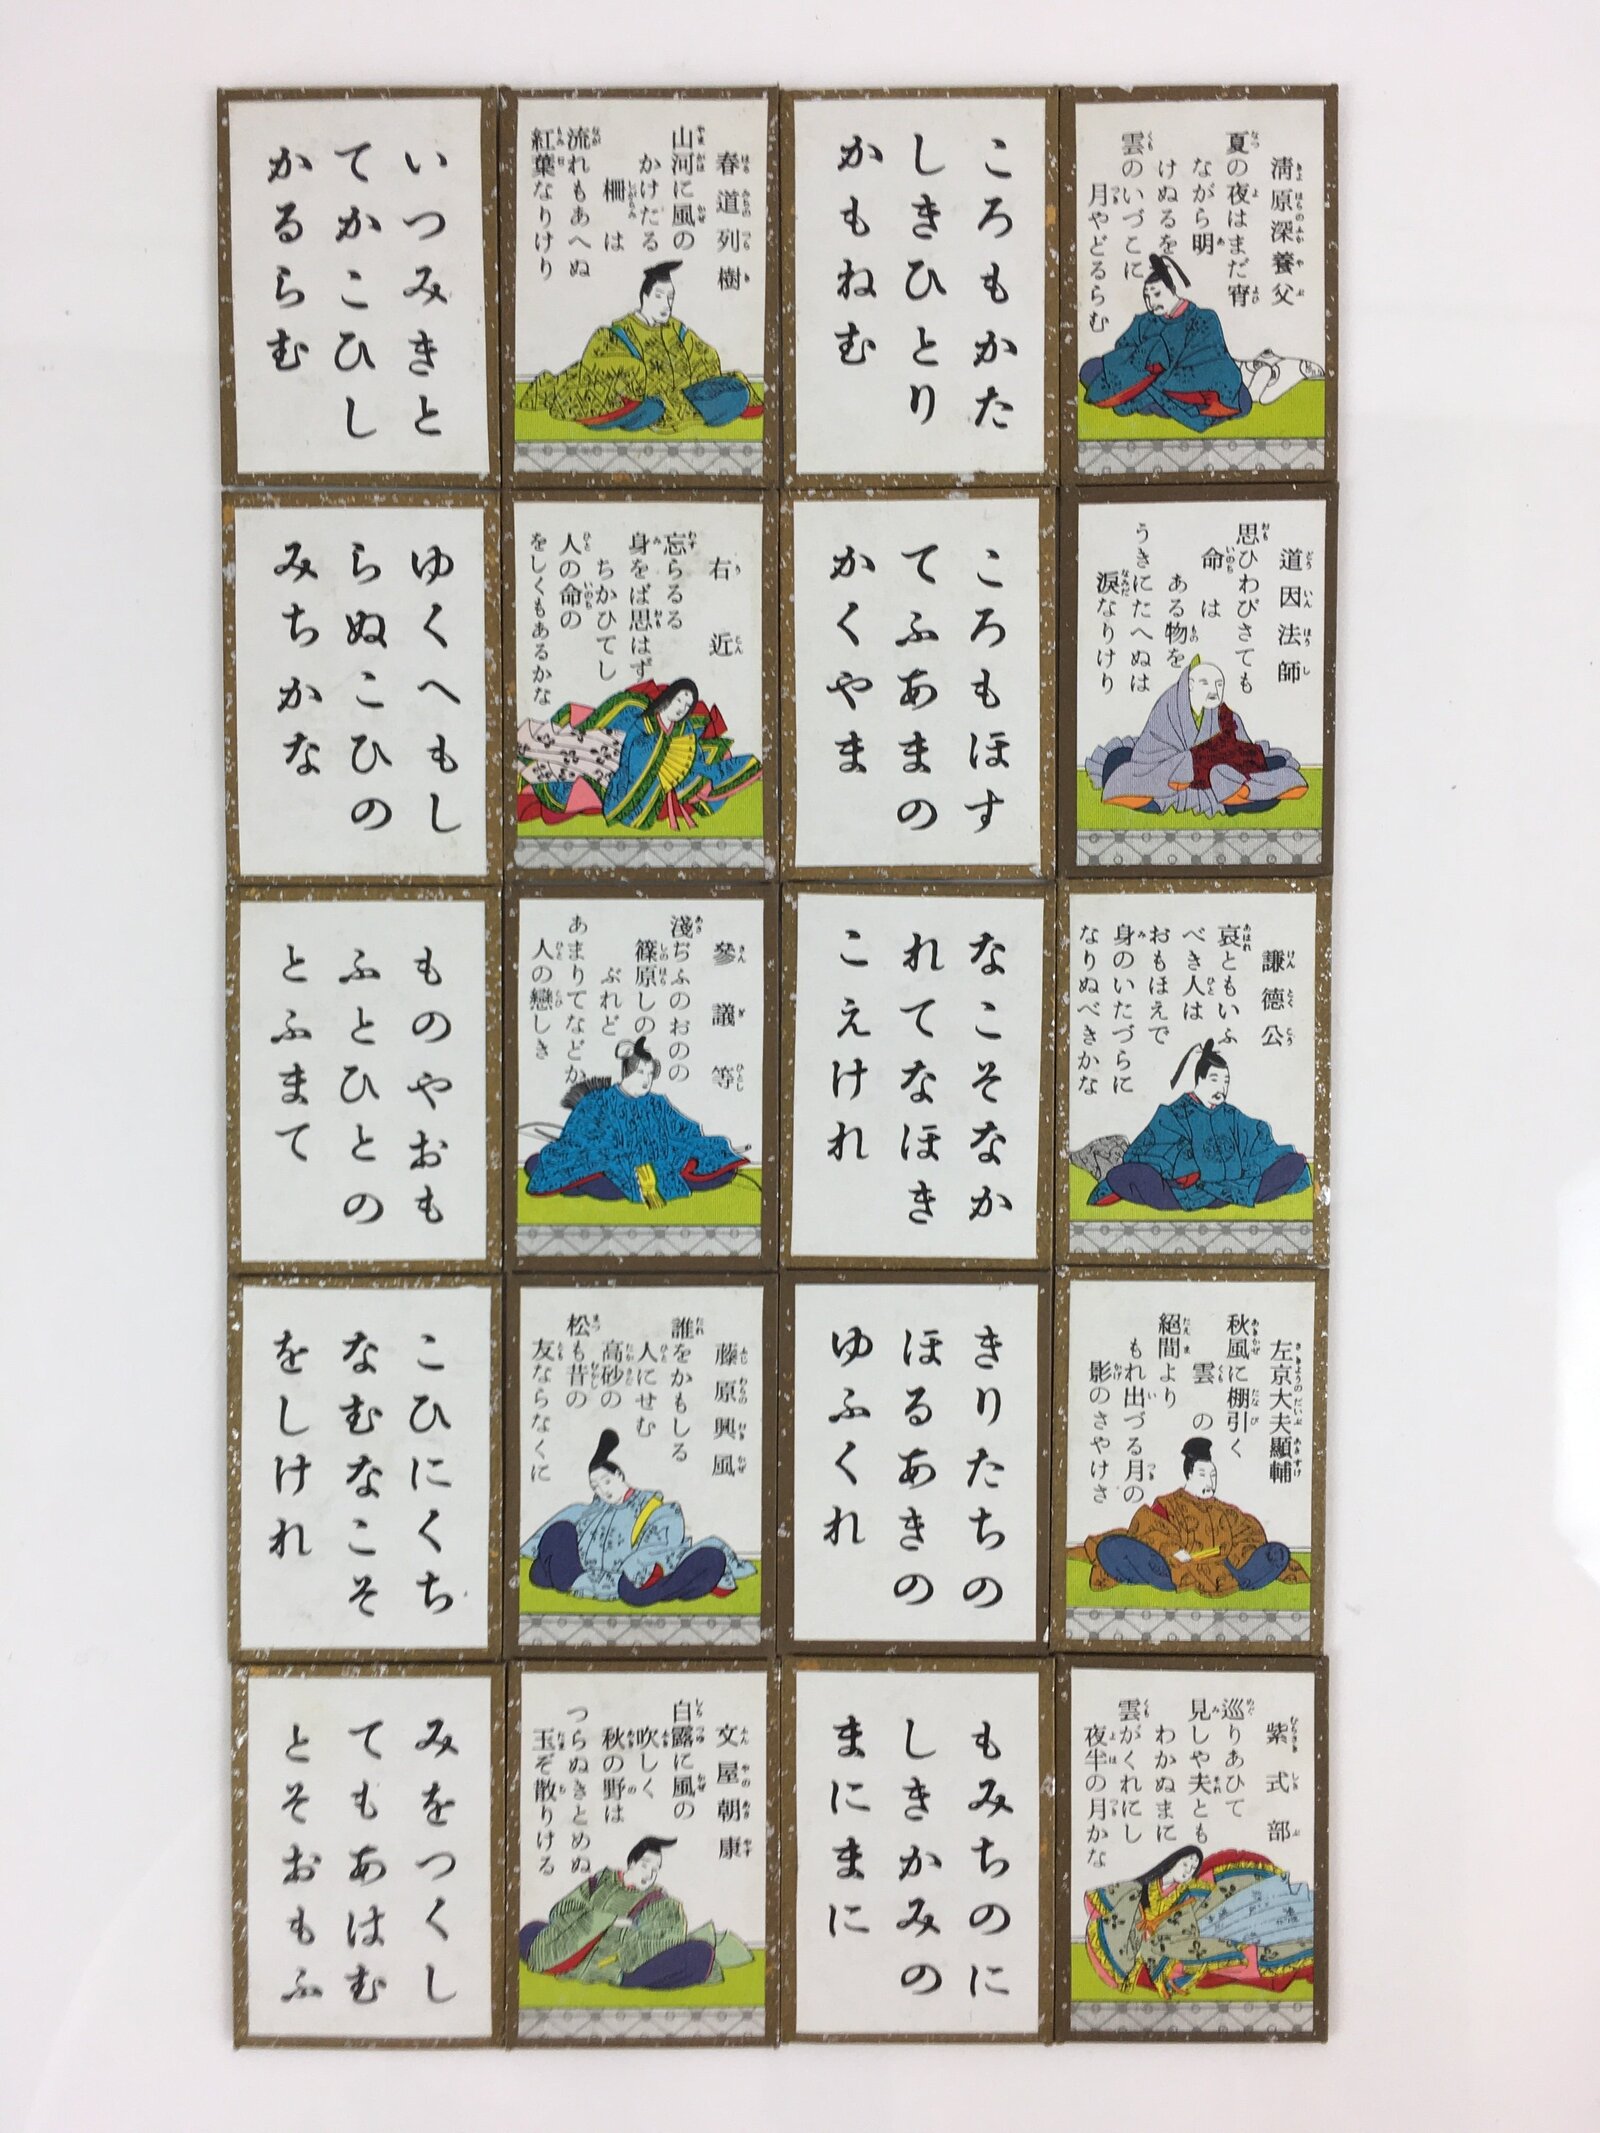 淸原深養父
夏の夜はまだ宵
ながら明
けぬるを
雲のいづこに
月やどるらむ
ころもかた
しきひとり
かもねむ
春道列樹
山河に風の
かけたる
柵は
流れもあへぬ
紅葉なりけり
いつみきと
てかこひし
かるらむ
道因法師
思ひわびさても
命は
ある物を
うきにたへぬは
淚なりけり
ころもほす
てふあまの
かくやま
右近
忘らるる
身をば思はず
ちかひてし
人の命の
をしくもあるかな
ゆくへもし
らぬこひの
みちかな
謙德公
哀ともいふ
べき人は
おもほえで
身のいたづらに
なりぬべきかな
なこそなか
れてなほき
こえけれ
參議等
淺ぢふのおのの
篠原しの
ぶれど
あまりてなどか
人の戀しき
ものやおも
ふとひとの
とふまて
左京大夫顯輔
秋風に棚引く
雲の
絕間より
もれ出づる月の
影のさやけさ
きりたちの
ほるあきの
ゆふくれ
藤原興風
誰をかもしる
人にせむ
高砂の
松も昔の
友ならなくに
こひにくち
なむなこそ
をしけれ
紫式部
巡りあひて
見しや夫とも
わかぬまに
雲がくれにし
夜半の月かな
もみちのに
しきかみの
まにまに
文屋朝康
白露に風の
吹しく
秋の野は
つらぬきとめぬ
玉ぞ散りける
みをつくし
てもあはむ
とそおもふ